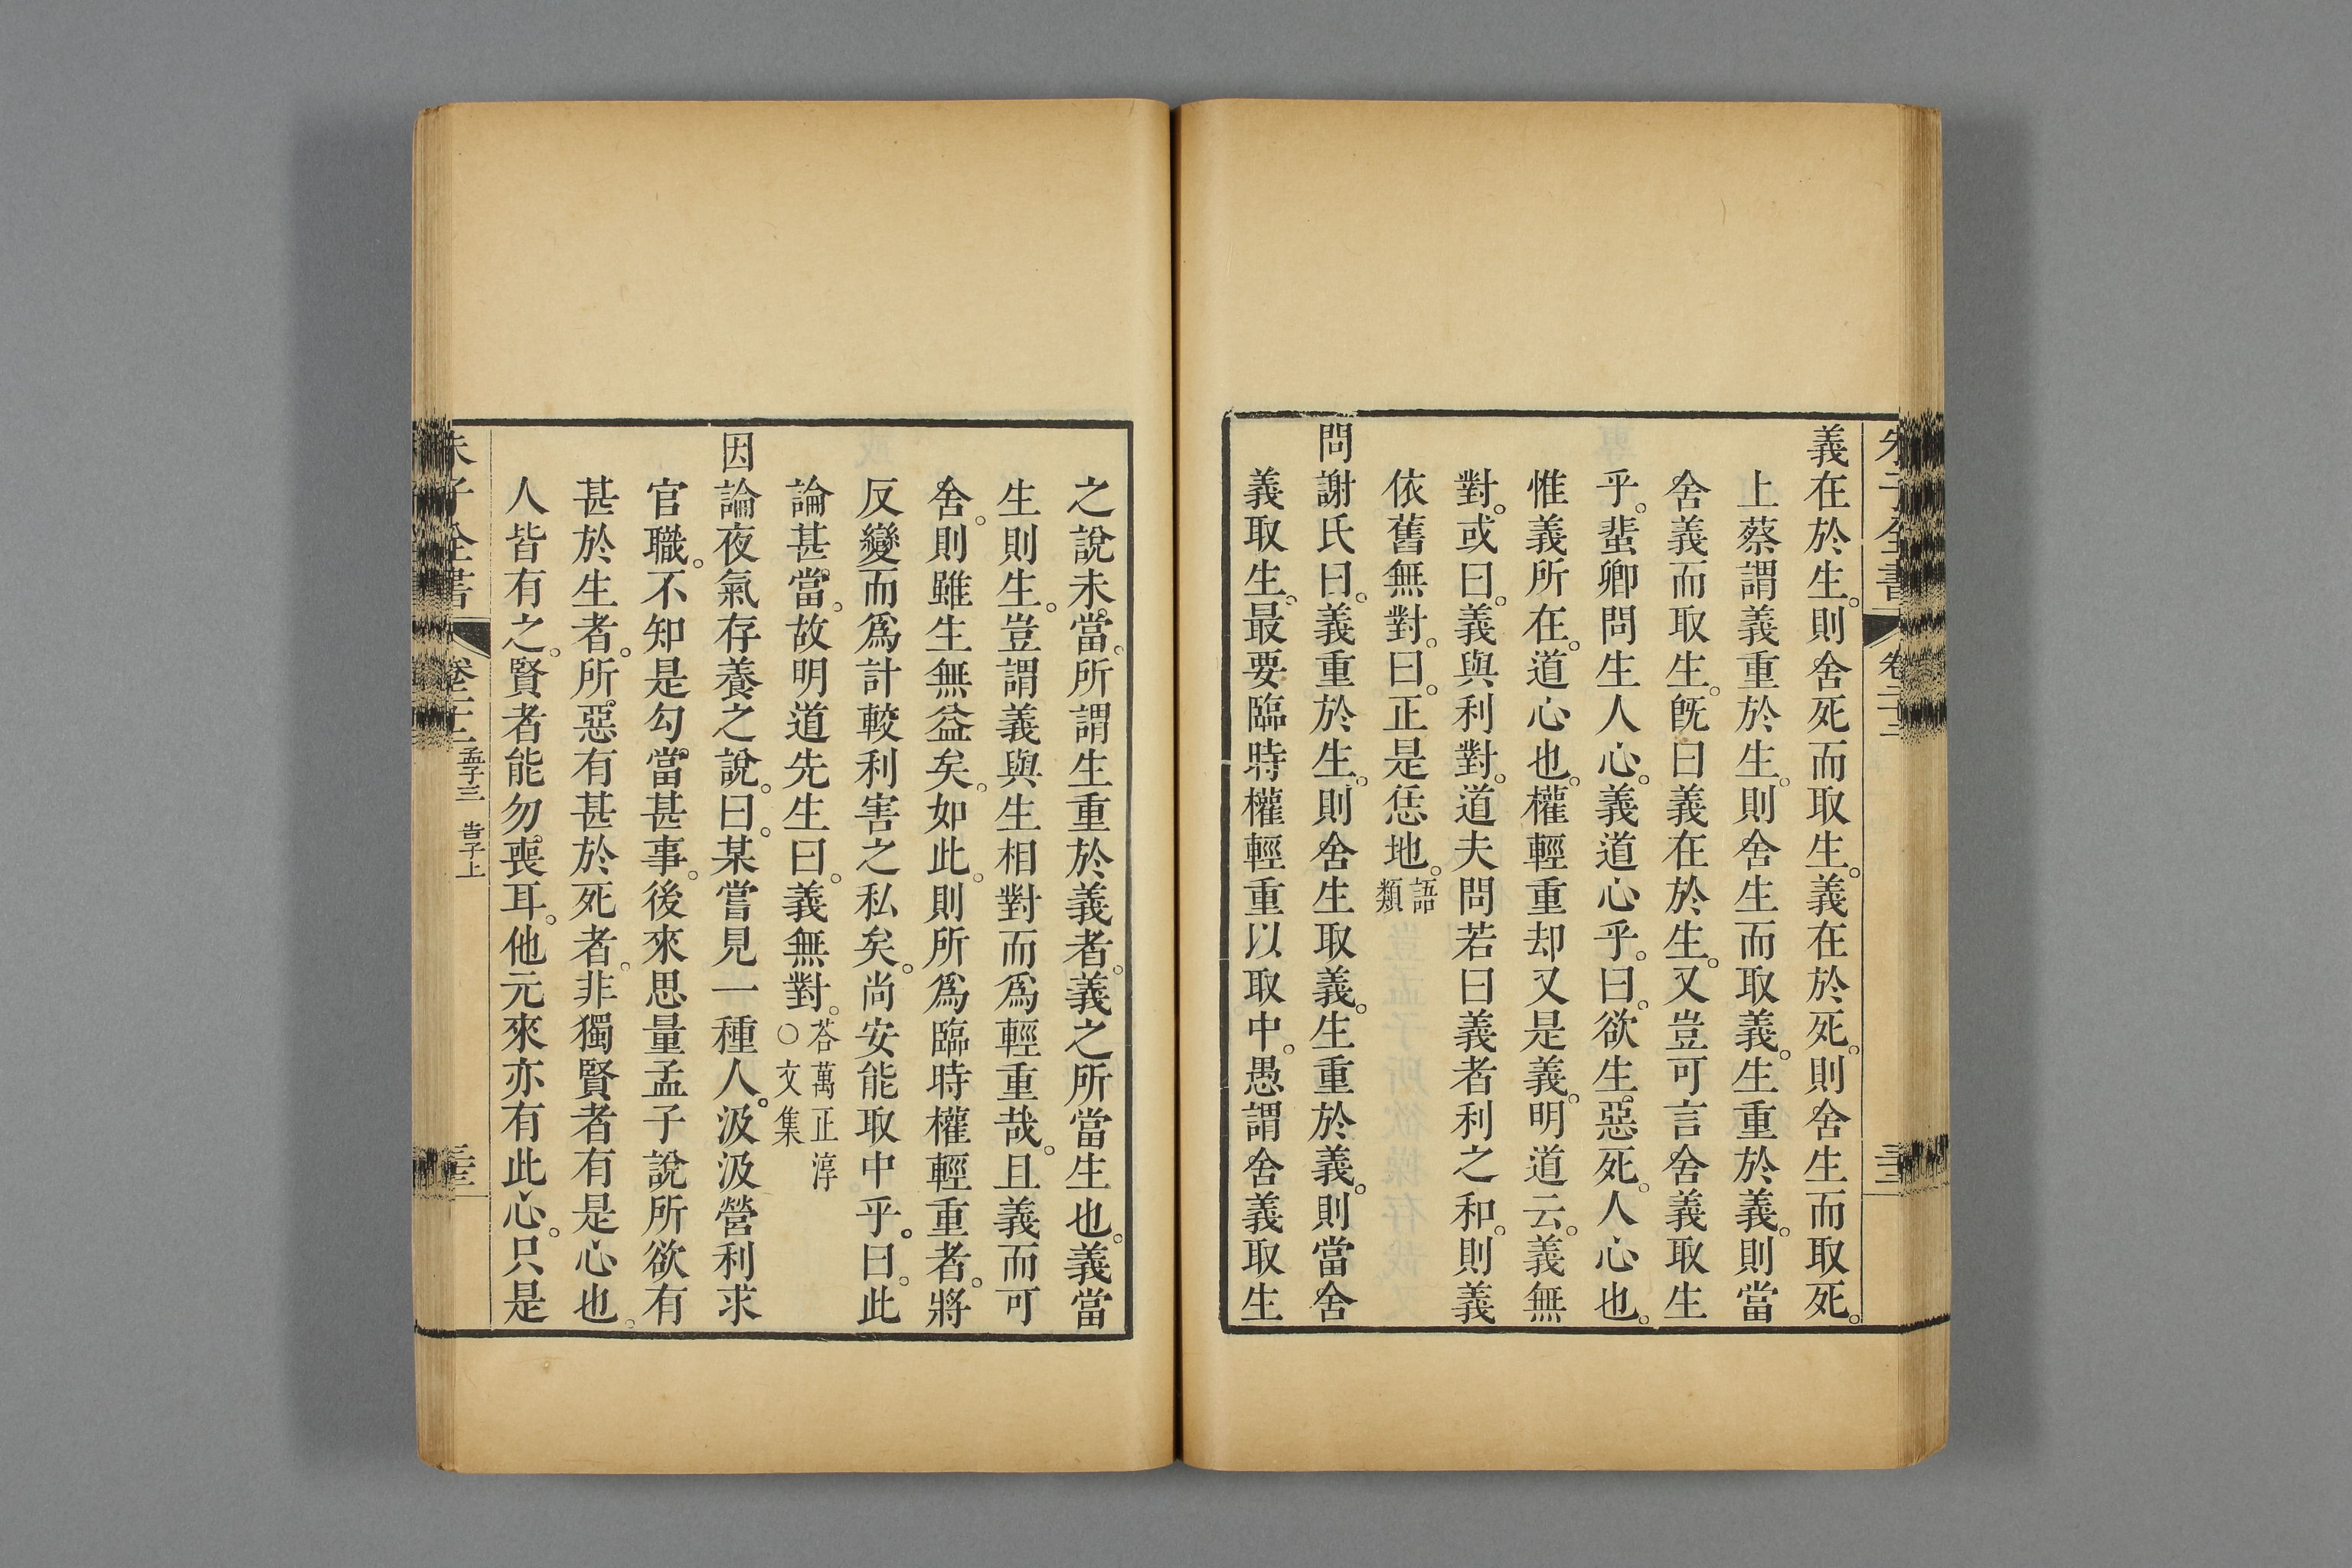 朱子全書 卷二十二
義在於生。則舍死而取生。義在於死。則舍生而取死。
上蔡謂義重於生。則舍生而取義。生重於義。則當
舍義而取生。旣曰義在於生。又豈可言舍義取生
乎。蜚卿問生人心。義道心乎。曰。欲生惡死。人心也。
惟義所在。道心也。權輕重却又是義。明道云。義無
對。或曰。義與利對。道夫問若曰義者利之和。則義
依舊無對。曰。正是恁地。語類
問謝氏曰。義重於生。則舍生取義。生重於義。則當舍
義取生。最要臨時權輕重以取中。愚謂舍義取生
之說未當。所謂生重於義者。義之所當生也。義當
生則生。豈謂義與生相對而爲輕重哉。且義而可
舍。則雖生無益矣。如此。則所爲臨時權輕重者。將
反變而爲計較利害之私矣。尚安能取中乎。曰。此
論甚當。故明道先生曰。義無對。荅萬正淳○文集
因論夜氣存養之說。曰。某嘗見一種人。汲汲營利求
官職。不知是勾當甚事。後來思量孟子說所欲有
甚於生者。所惡有甚於死者。非獨賢者有是心也。
人皆有之。賢者能勿喪耳。他元來亦有此心。只是
子全書 孟子三 告子上